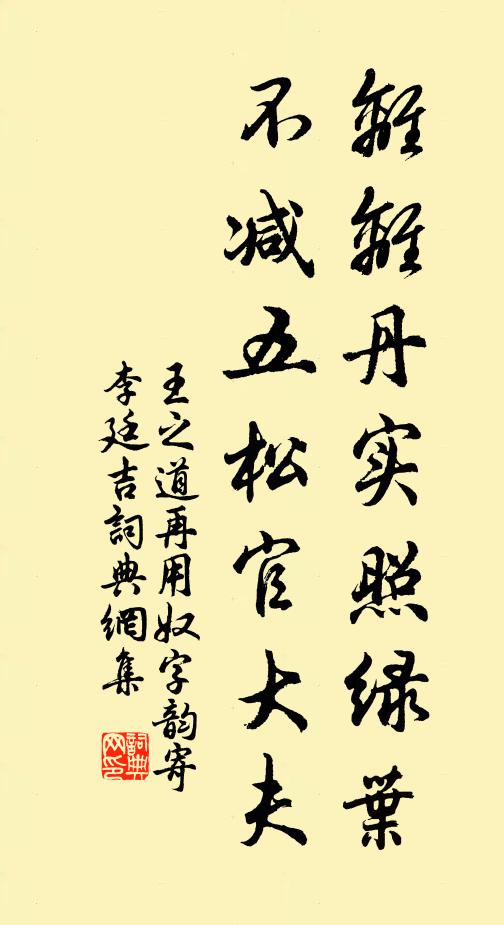 離離丹实照绿葉
不减五松官大夫
王之道再用奴字韵寄
李廷吉詞典網集
詞典
网印